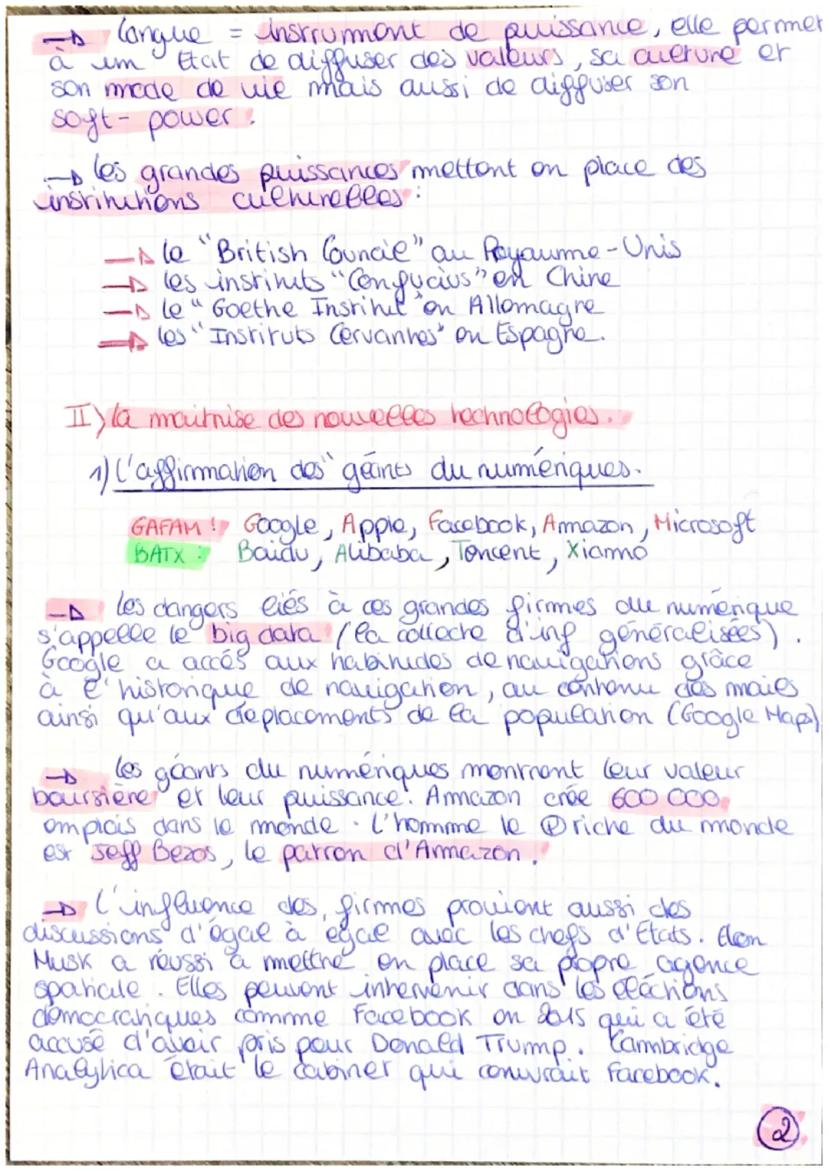 → langue = instrument de puissance, elle permet
à un Etat de diffuser des valeurs, sa culture et
son mode de vie mais aussi de diffuser son
soft-power.
→ les grandes puissances mettent en place des
institutions culturelles :
→ le "British Council" au Royaume-Unis
→ les instituts "Confucius" en Chine
→ le "Goethe Institut" en Allemagne
→ les "Instituts Cervantes" en Espagne.
II) la maitrise des nouvelles technologies.
1) L'affirmation des "géants du numériques.
GAFAM : Google, Apple, Facebook, Amazon, Microsoft
BATX : Baidu, Alibaba, Tencent, Xiamo
→ les dangers liés à ces grandes firmes du numérique
s'appelle le big data (la collecte d'inf généralisées).
Google a accés aux habitudes de navigations grâce
à l'historique de navigation, au contenu des mails
ainsi qu'aux déplacements de la population (Google Maps)
→ les géants du numériques montrent leur valeur
boursière et leur puissance. Amazon crée 600 000
emplois dans le monde. L'homme le + riche du monde
est Jeff Bezos, le patron d'Amazon.
→ L'influence des firmes provient aussi des
discussions d'égal à égal avec les chefs d'Etats. Elon
Musk a réussi à mettre en place sa propre agence
spatiale. Elles peuvent intervenir dans les éléctions
démocratiques comme Facebook en 2015 qui a été
accusé d'avoir pris pour Donald Trump. Cambridge
Analytica était le cabinet qui couvrait Facebook.
2